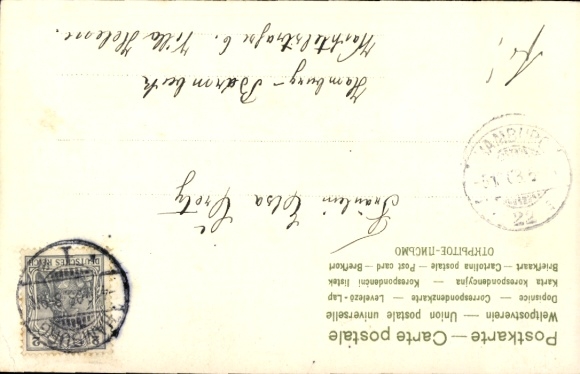 Postkarte — Carte postale
Weltpostverein — Union postale universelle
Dopisnice — Correspondenzkarte — Levelező-Lap
Karta korespondencyjna — Korespondenční lístek
Briefkaart — Cartolina postale — Post card — Brefkort
ОТКРЫТОЕ-ПИСЬМО
Fräulein Elsa
Hamburg-Barmbeck
6. Villa Helene.
HAMBURG
22
DEUTSCHES REICH
2
HAMBURG
1